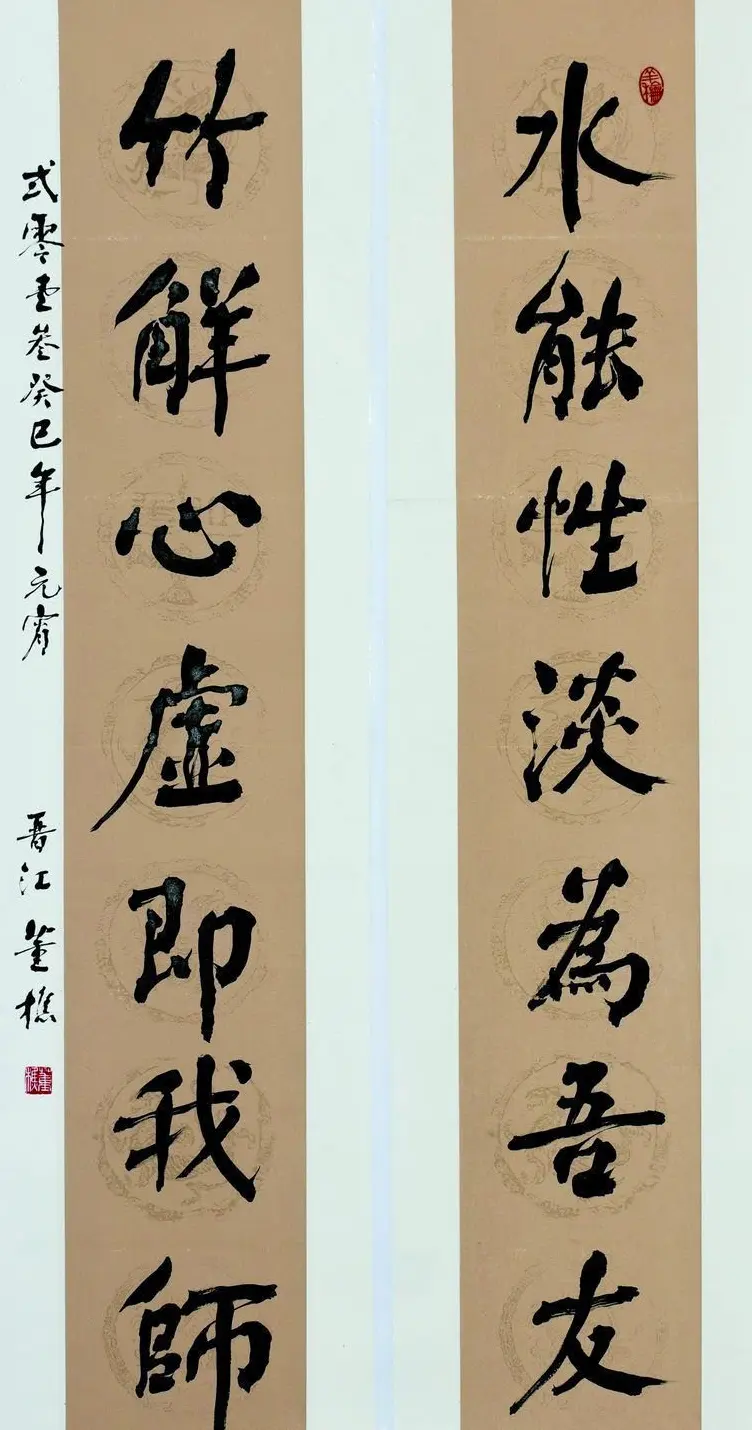 水能性淡為吾友
竹解心虛即我師
弍零壹叁癸巳年元宵
晉江董樵